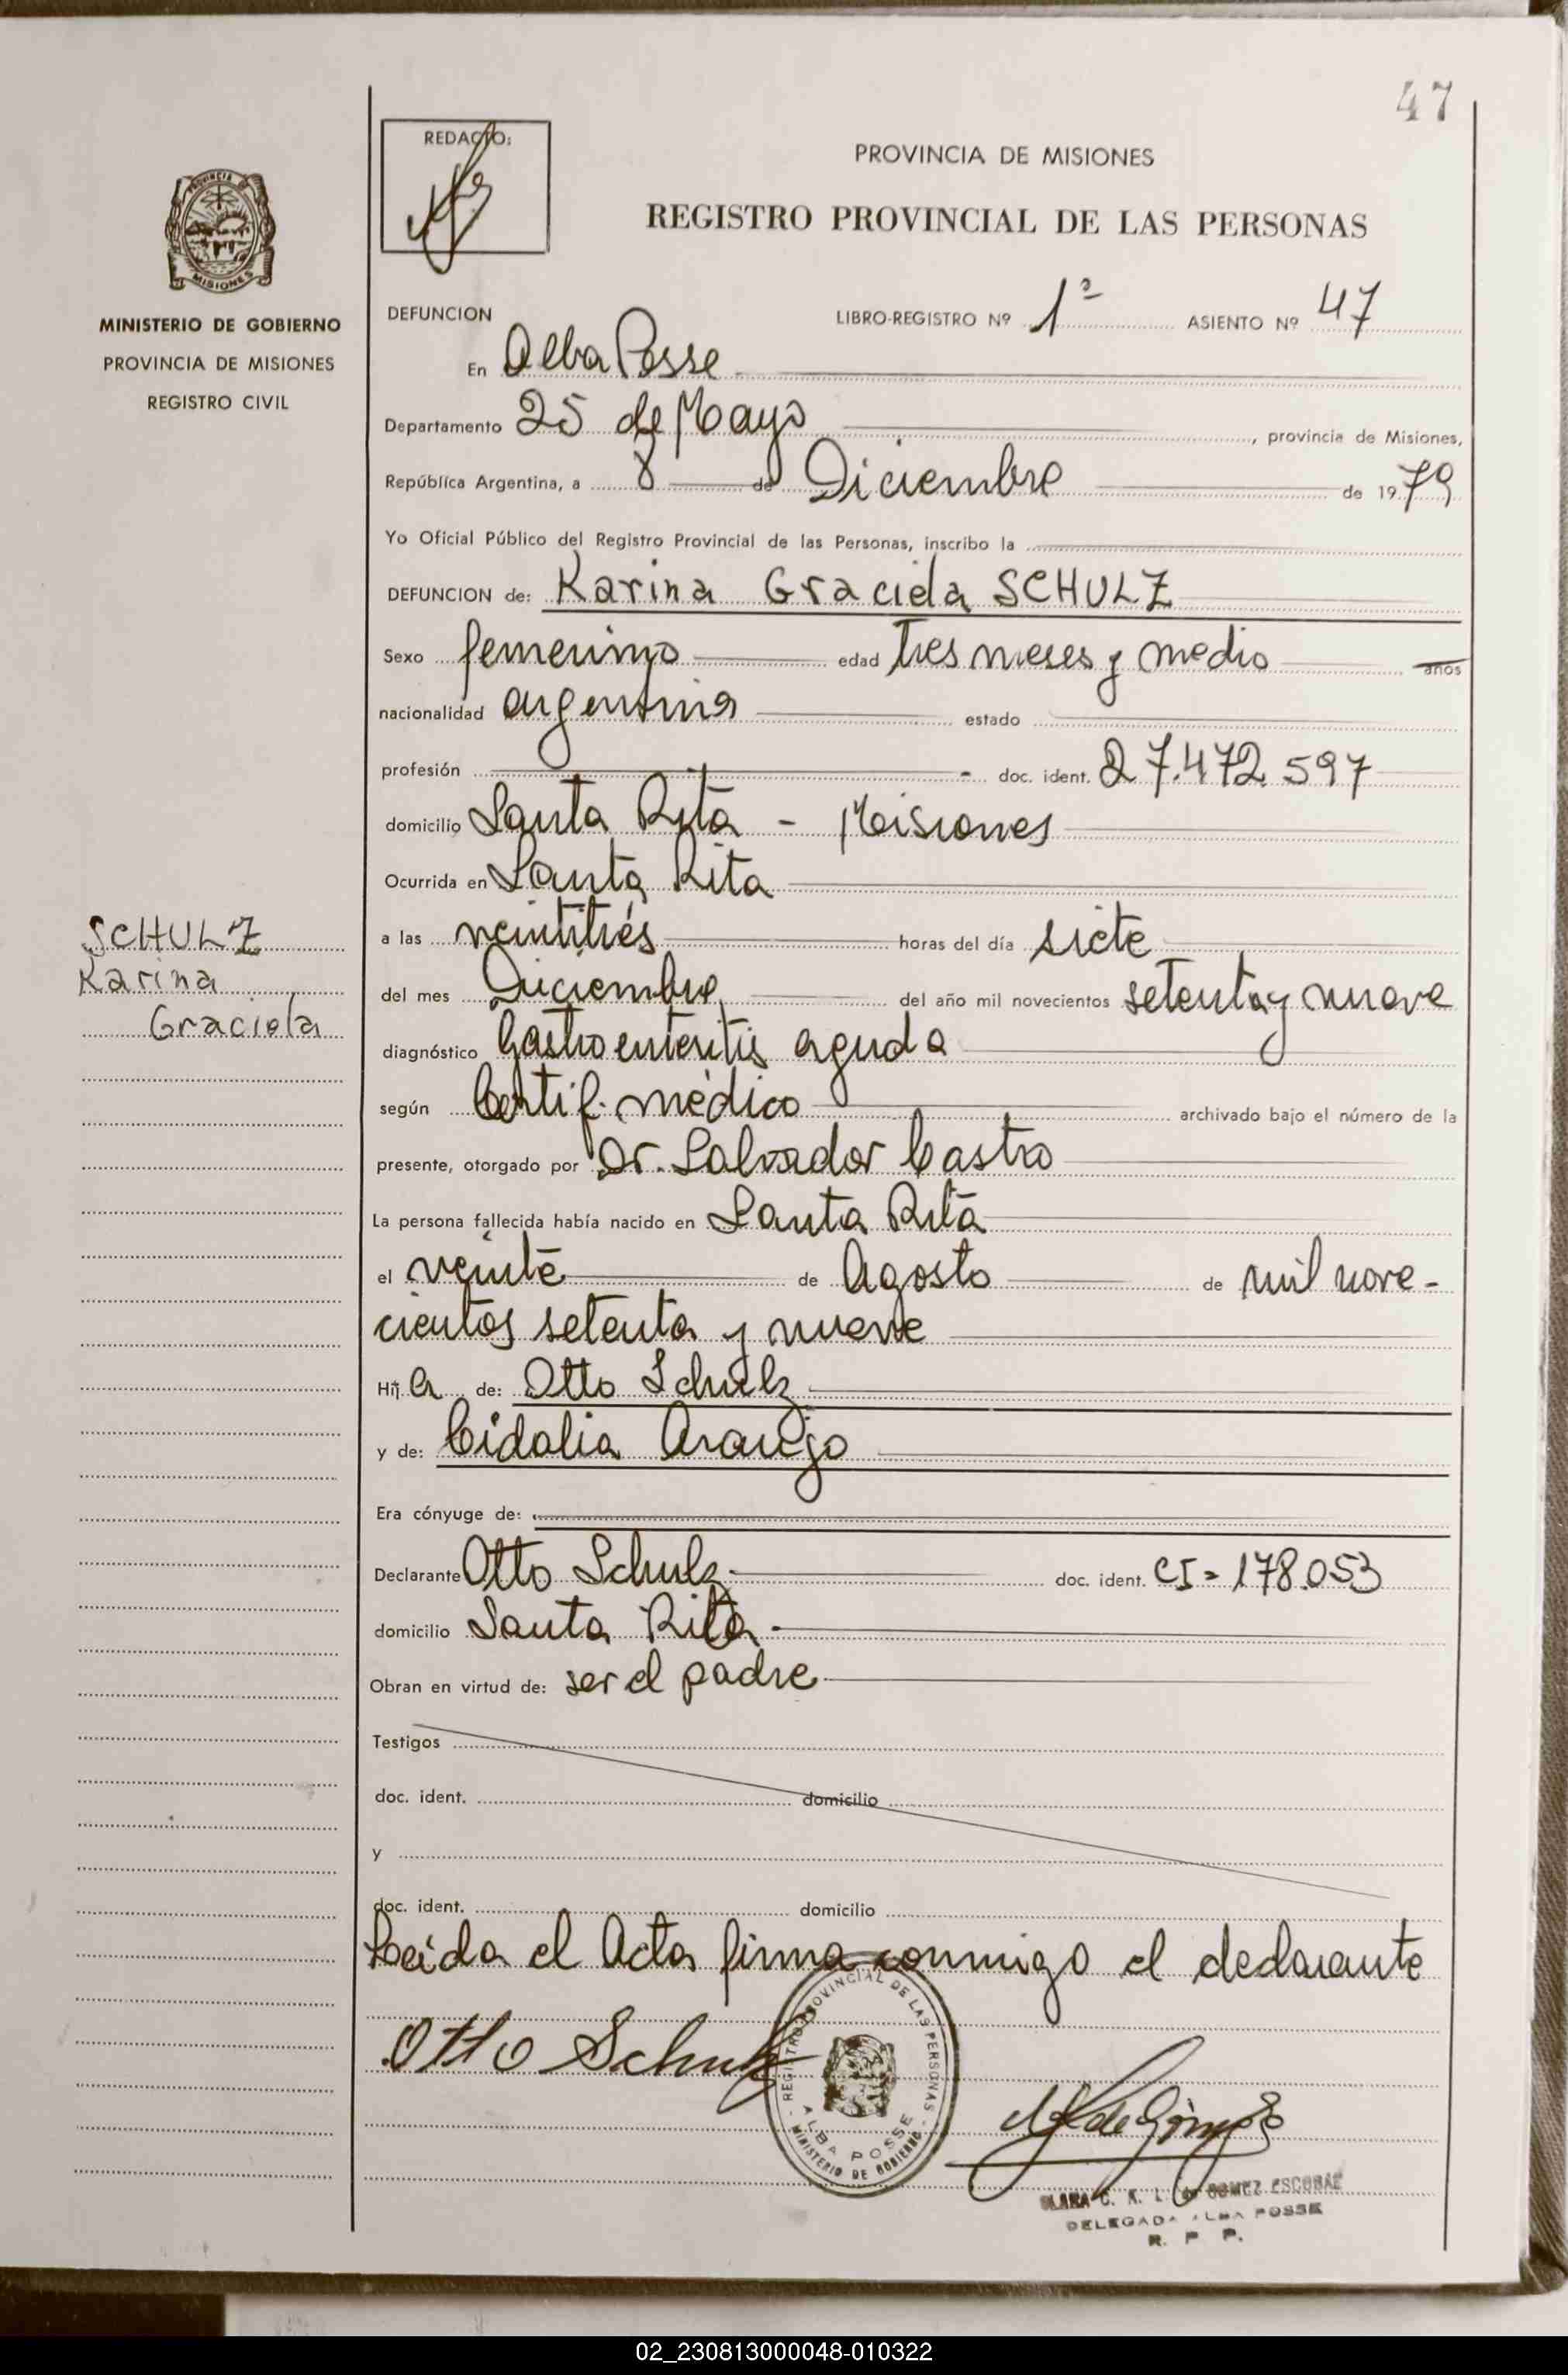 47
REDACTO:
PROVINCIA DE MISIONES
REGISTRO PROVINCIAL DE LAS PERSONAS
PROVINCIA DE
MISIONES
MINISTERIO DE GOBIERNO
PROVINCIA DE MISIONES
REGISTRO CIVIL
DEFUNCION LIBRO-REGISTRO Nº 1º ASIENTO Nº 47
En Alba Posse
Departamento 25 de Mayo, provincia de Misiones,
República Argentina, a 8 de Diciembre de 1979
Yo Oficial Público del Registro Provincial de las Personas, inscribo la
DEFUNCION de: Karina Graciela SCHULZ
Sexo femenino edad tres meses y medio años
nacionalidad argentina estado
profesión - doc. ident. 27.472.597
domicilio Santa Rita - Misiones
Ocurrida en Santa Rita
SCHULZ
Karina
Graciela
a las veintitrés horas del día siete
del mes Diciembre del año mil novecientos setenta y nueve
diagnóstico Gastroenteritis aguda
según Certif. médico archivado bajo el número de la
presente, otorgado por Dr. Salvador Castro
La persona fallecida había nacido en Santa Rita
el veinte de Agosto de mil nove-
cientos setenta y nueve
Hij a de: Otto Schulz
y de: Cidalia Araujo
Era cónyuge de:
Declarante Otto Schulz doc. ident. CI = 178.053
domicilio Santa Rita
Obran en virtud de: ser el padre
Testigos
doc. ident. domicilio
y
doc. ident. domicilio
Leída el Acta firma conmigo el declarante
Otto Schulz
REGISTRO PROVINCIAL DE LAS PERSONAS
ALBA POSSE
MINISTERIO DE GOBIERNO
de GOMEZ ESCOBAR
DELEGADA ALBA POSSE
R. P. P.
02_230813000048-010322